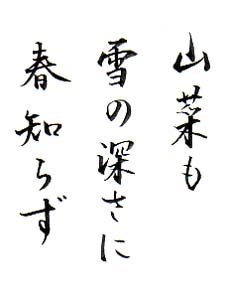 山菜も
雪の深さに
春知らず